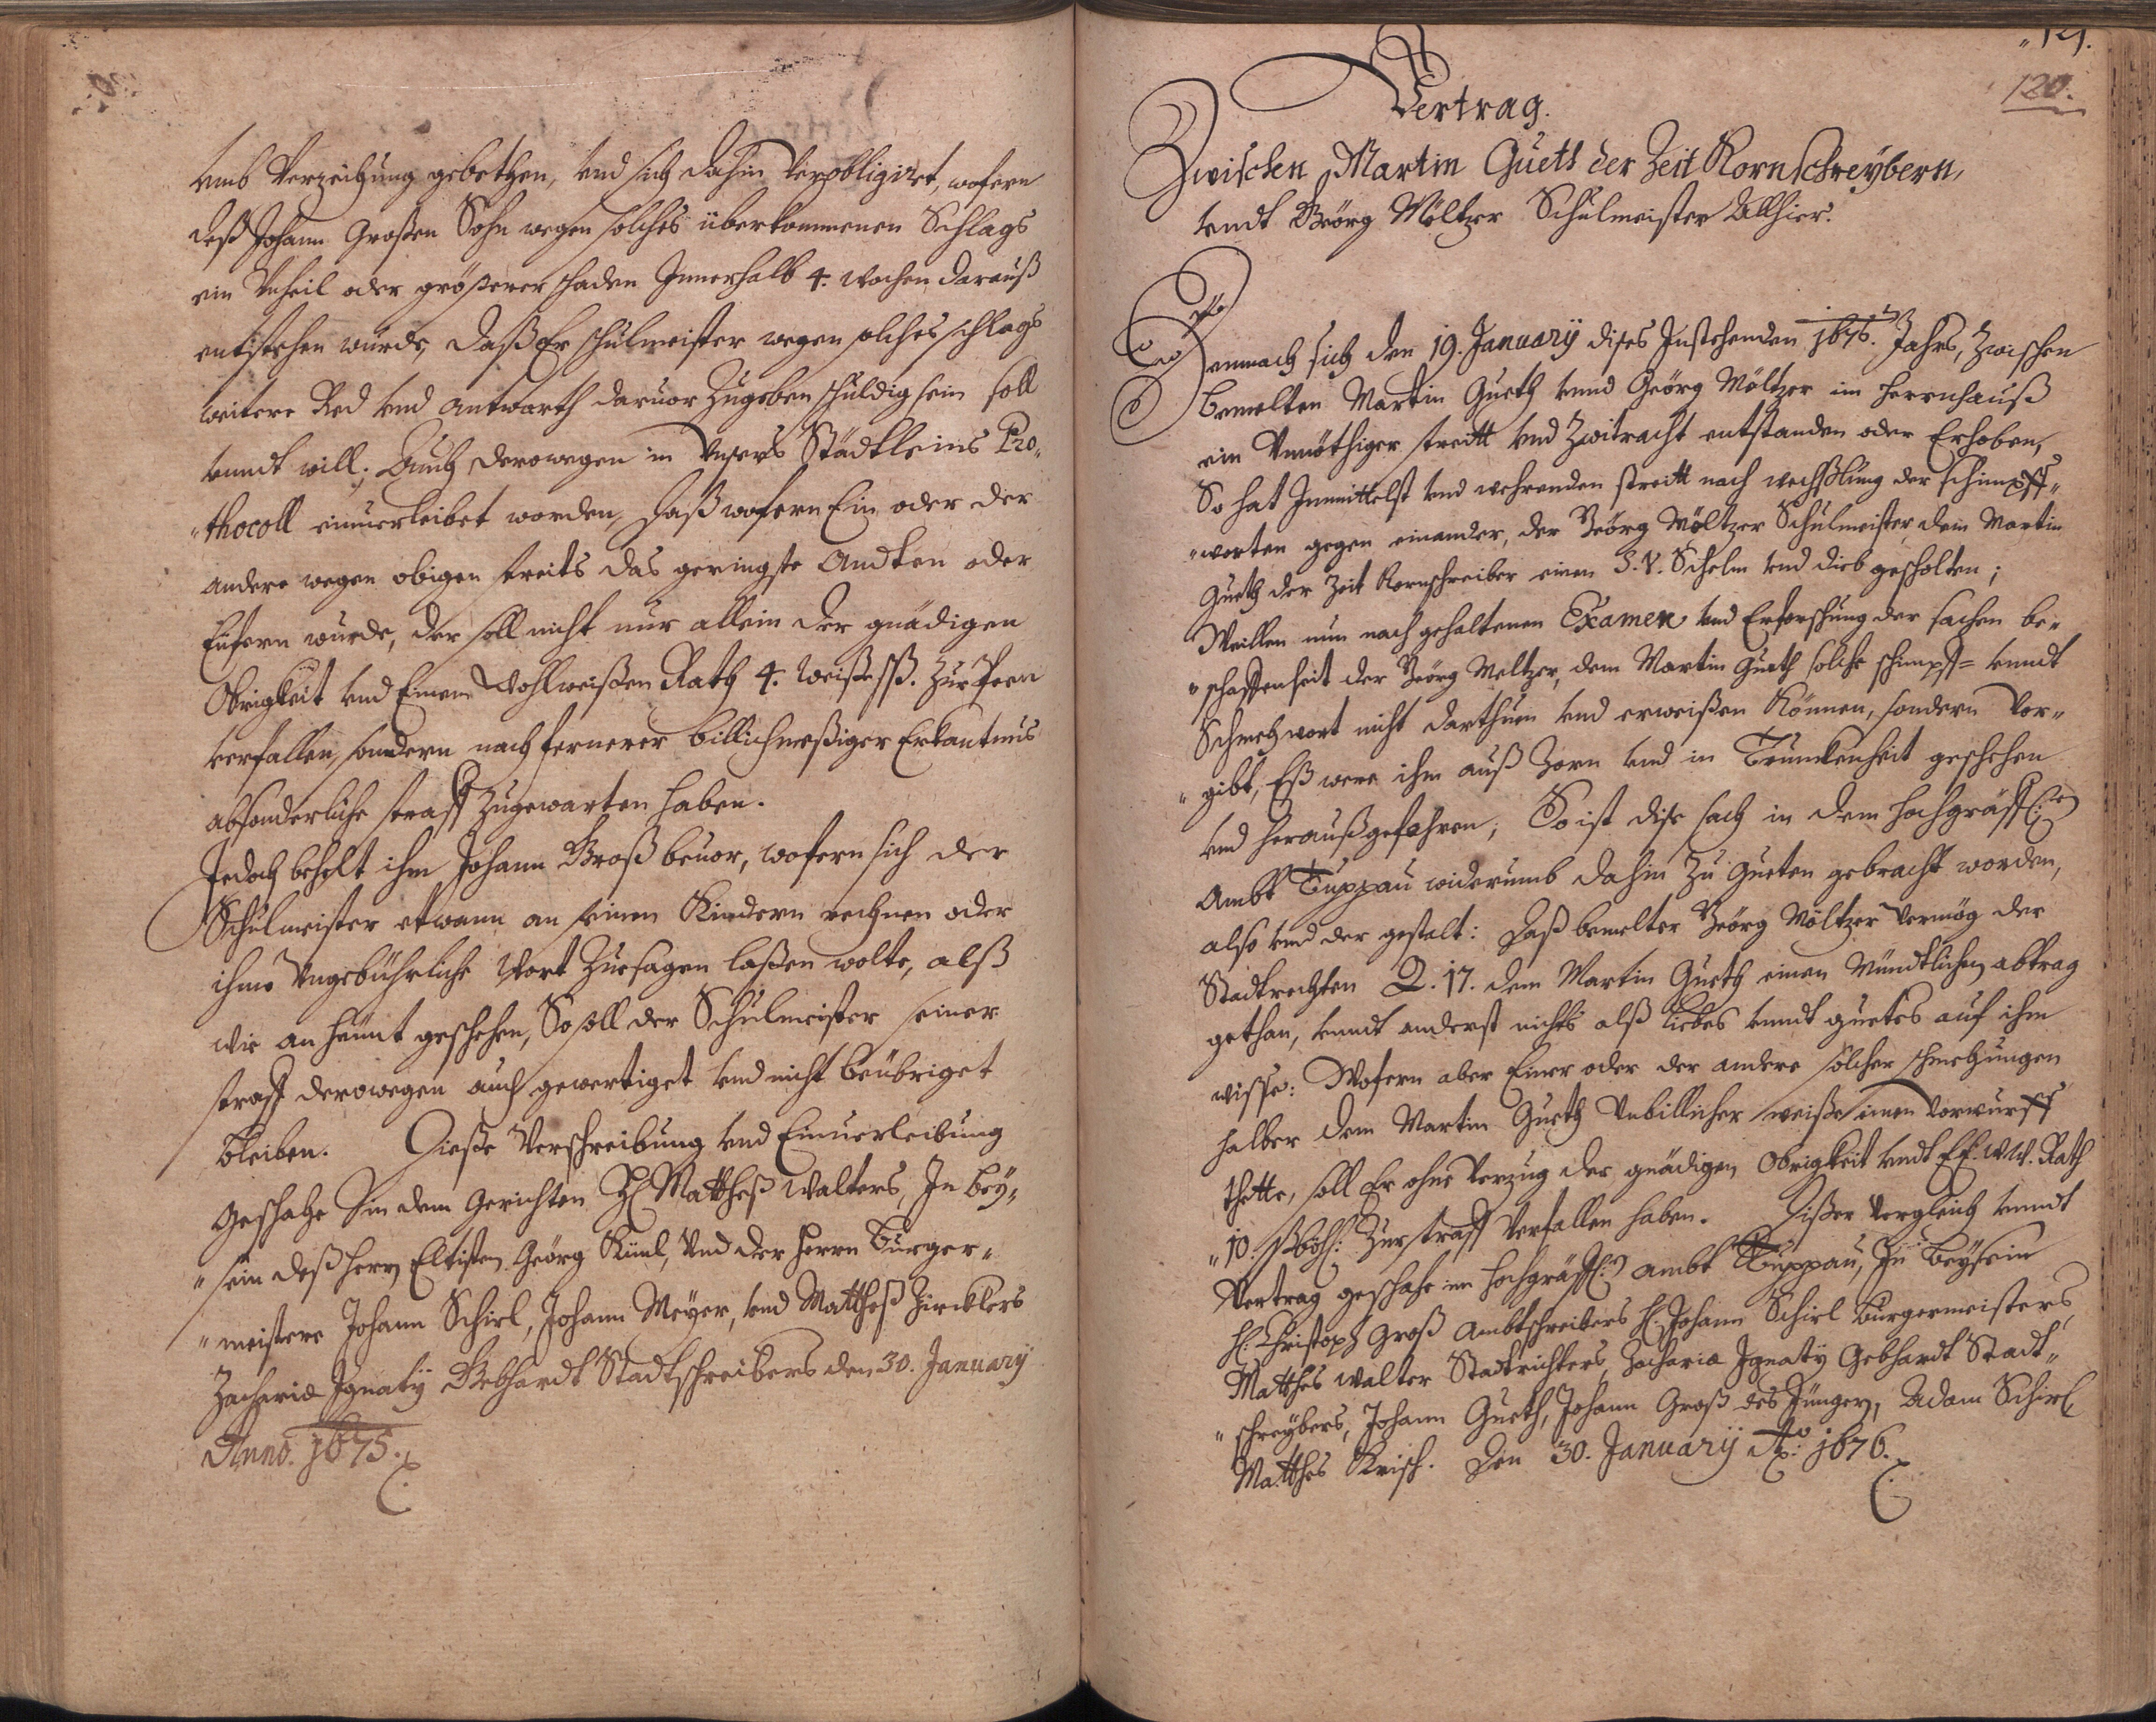 umb Verzeihung gebethen, und sich dahin verobligiret, wofern
deß Johann Großen Sohn wegen solches überkommenen Schlags
ein Unheil oder größerer schaden Innerhalb 4. Wochen darauß
entstehen würde, daß Er schulmeister wegen solches schlags
weitere Red und Antwarth daruor zugeben schuldig sein soll
unndt will; Auch derowegen in Unsers Städtleins Pro„
„thocoll einuerleibet worden, daß wofern Ein oder der
andere wegen obigen streits das geringste Andten oder
Eüfern würde, der soll nicht nur allein der gnädigen
Obrigkeit und Einem Wohlweißen Rath 4. weiße ßß. zur Poen
verfallen, sondern nach fernerer billichmeßiger Erkantnus
absonderliche straff zugewarten haben.
Jedoch behelt ihm Johann Groß beuor, wofern sich der
Schulmeister etwann an seinen Kindern rechnen oder
ihme Ungebührliche Wort zuesagen laßen wolte, alß
wie an heünt geschehen, So soll der Schulmeister seiner
straff derowegen auch gewertiget und nicht beübriget
bleiben. Dieße Verschreibung und Einuerleibung
geschahe bin dem Gerichten H. Mattheß Walters, In bey„
„sein deß Herrn Eltisten Geörg Künl, Und der Herrn Burger„
„meistere Johann Schirl, Johann Meÿer, und Mattheß Zircklers
Zachariæ Ignatÿ Gebhardt Stadtschreibers den 30. Januarÿ
Anno. 1675.
„121.
120.
Vertrag.
Zwischen Martin Gueth der Zeit Kornschreÿbern,
undt Geörg Möltzer Schulmeister Allhier.
Demnach sich den 19. Januarÿ dises Instehenden 1676. Jahrs, zwischen
bemelten Martin Gueth unnd Geörg Möltzer im Herrnhauß
ein Unnöthiger streitt und Zwitracht entstanden oder Erhoben,
So hat Inmittelst und wehrenden streitt nach wechßlung der schimpff„
„worten gegen einander, der Geörg Möltzer Schulmeister, dem Martin
Gueth der Zeit Kornschreiber einen S. V. Schelm und dieb gescholten;
Weillen nun nach gehaltenen Examen und Erforschung der sachen be„
„schaffenheit der Geörg Meltzer, dem Martin Gueth solche schimpf= unndt
Schmehwort nicht darthuen und erweißen Können, sondern vor„
„gibt, Eß were ihm auß Zorn und in Trunckenheit geschehen
und heraußgefahren; So ist dise sach in dem Hochgräffl:
Ambt Tuppau widerumb dahin zu Gueten gebracht worden,
also und der gestalt: Daß bemelter Geörg Möltzer vermög der
Stadtrechten Q. 17. dem Martin Gueth einen Mündtlichen abtrag
gethan, unndt anderst nichts alß liebes unndt guetes auf ihm
wisse: Wofern aber Einer oder der andere solcher schmehungen
halber dem Martin Gueth Unbillicher weiße einen vorwurff
thette, soll Er ohne Verzug der gnädigen Obrigkeit undt EE. WW. Rath
„10. ßböh: zur straff verfallen haben. Dißer Vergleich unndt
Vertrag geschahe im Hochgräffl: Ambt Tuppau, In beÿsein
H: Christoph Groß Ambtschreibers H. Johann Schirl Burgermeisters,
Matthes Walter Stadtrichters, Zachariæ Ignatÿ Gebhardt Stadt„
„schreÿbers, Johann Gueth, Johann Groß des Jüngern, Adam Schirl
Matthes Krisch. Den 30. Januarÿ Ao: 1676.